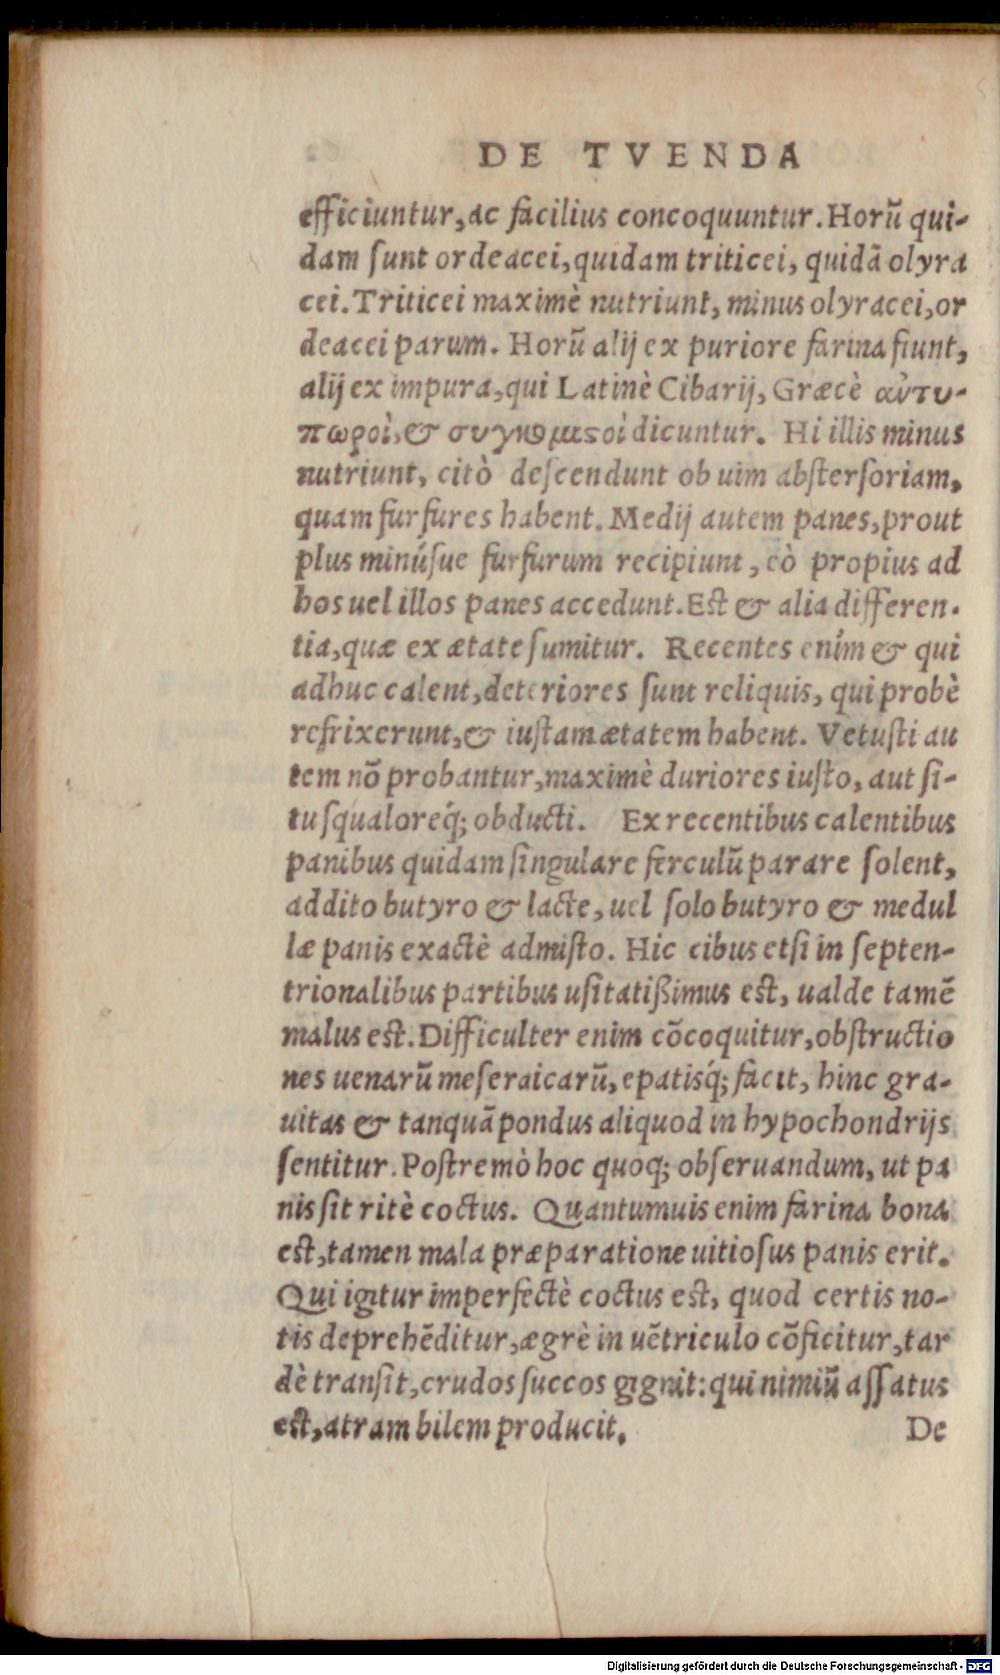 DE TVENDA
efficiuntur, ac facilius concoquuntur. Horũ qui-
dam sunt ordeacei, quidam triticei, quidã olyra
cei. Triticei maximè nutriunt, minus olyracei, or
deacei parum. Horũ alij ex puriore farina fiunt,
alij ex impura, qui Latinè Cibarij, Græcè αὐτυ-
πωροὶ, & συγκομιστοὶ dicuntur. Hi illis minus
nutriunt, citò descendunt ob uim abstersoriam,
quam furfures habent. Medij autem panes, prout
plus minúsue furfurum recipiunt, eò propius ad
hos uel illos panes accedunt. Est & alia differen-
tia, quæ ex ætate sumitur. Recentes enim & qui
adhuc calent, deteriores sunt reliquis, qui probè
refrixerunt, & iustam ætatem habent. Vetusti au
tem nõ probantur, maximè duriores iusto, aut si-
tu squaloreq́; obducti. Ex recentibus calentibus
panibus quidam singulare ferculũ parare solent,
addito butyro & lacte, uel solo butyro & medul
læ panis exactè admisto. Hic cibus etsi in septen-
trionalibus partibus usitatißimus est, ualde tamẽ
malus est. Difficulter enim cõcoquitur, obstructio
nes uenarũ meseraicarũ, epatisq́; facit, hinc gra-
uitas & tanquã pondus aliquod in hypochondrijs
sentitur. Postremò hoc quoq; obseruandum, ut pa
nis sit ritè coctus. Quantumuis enim farina bona
est, tamen mala præparatione uitiosus panis erit.
Qui igitur imperfectè coctus est, quod certis no-
tis deprehẽditur, ægrè in uẽtriculo cõficitur, tar
dè transit, crudos succos gignit: qui nimiũ assatus
est, atram bilem producit.
De
Digitalisierung gefördert durch die Deutsche Forschungsgemeinschaft - DFG